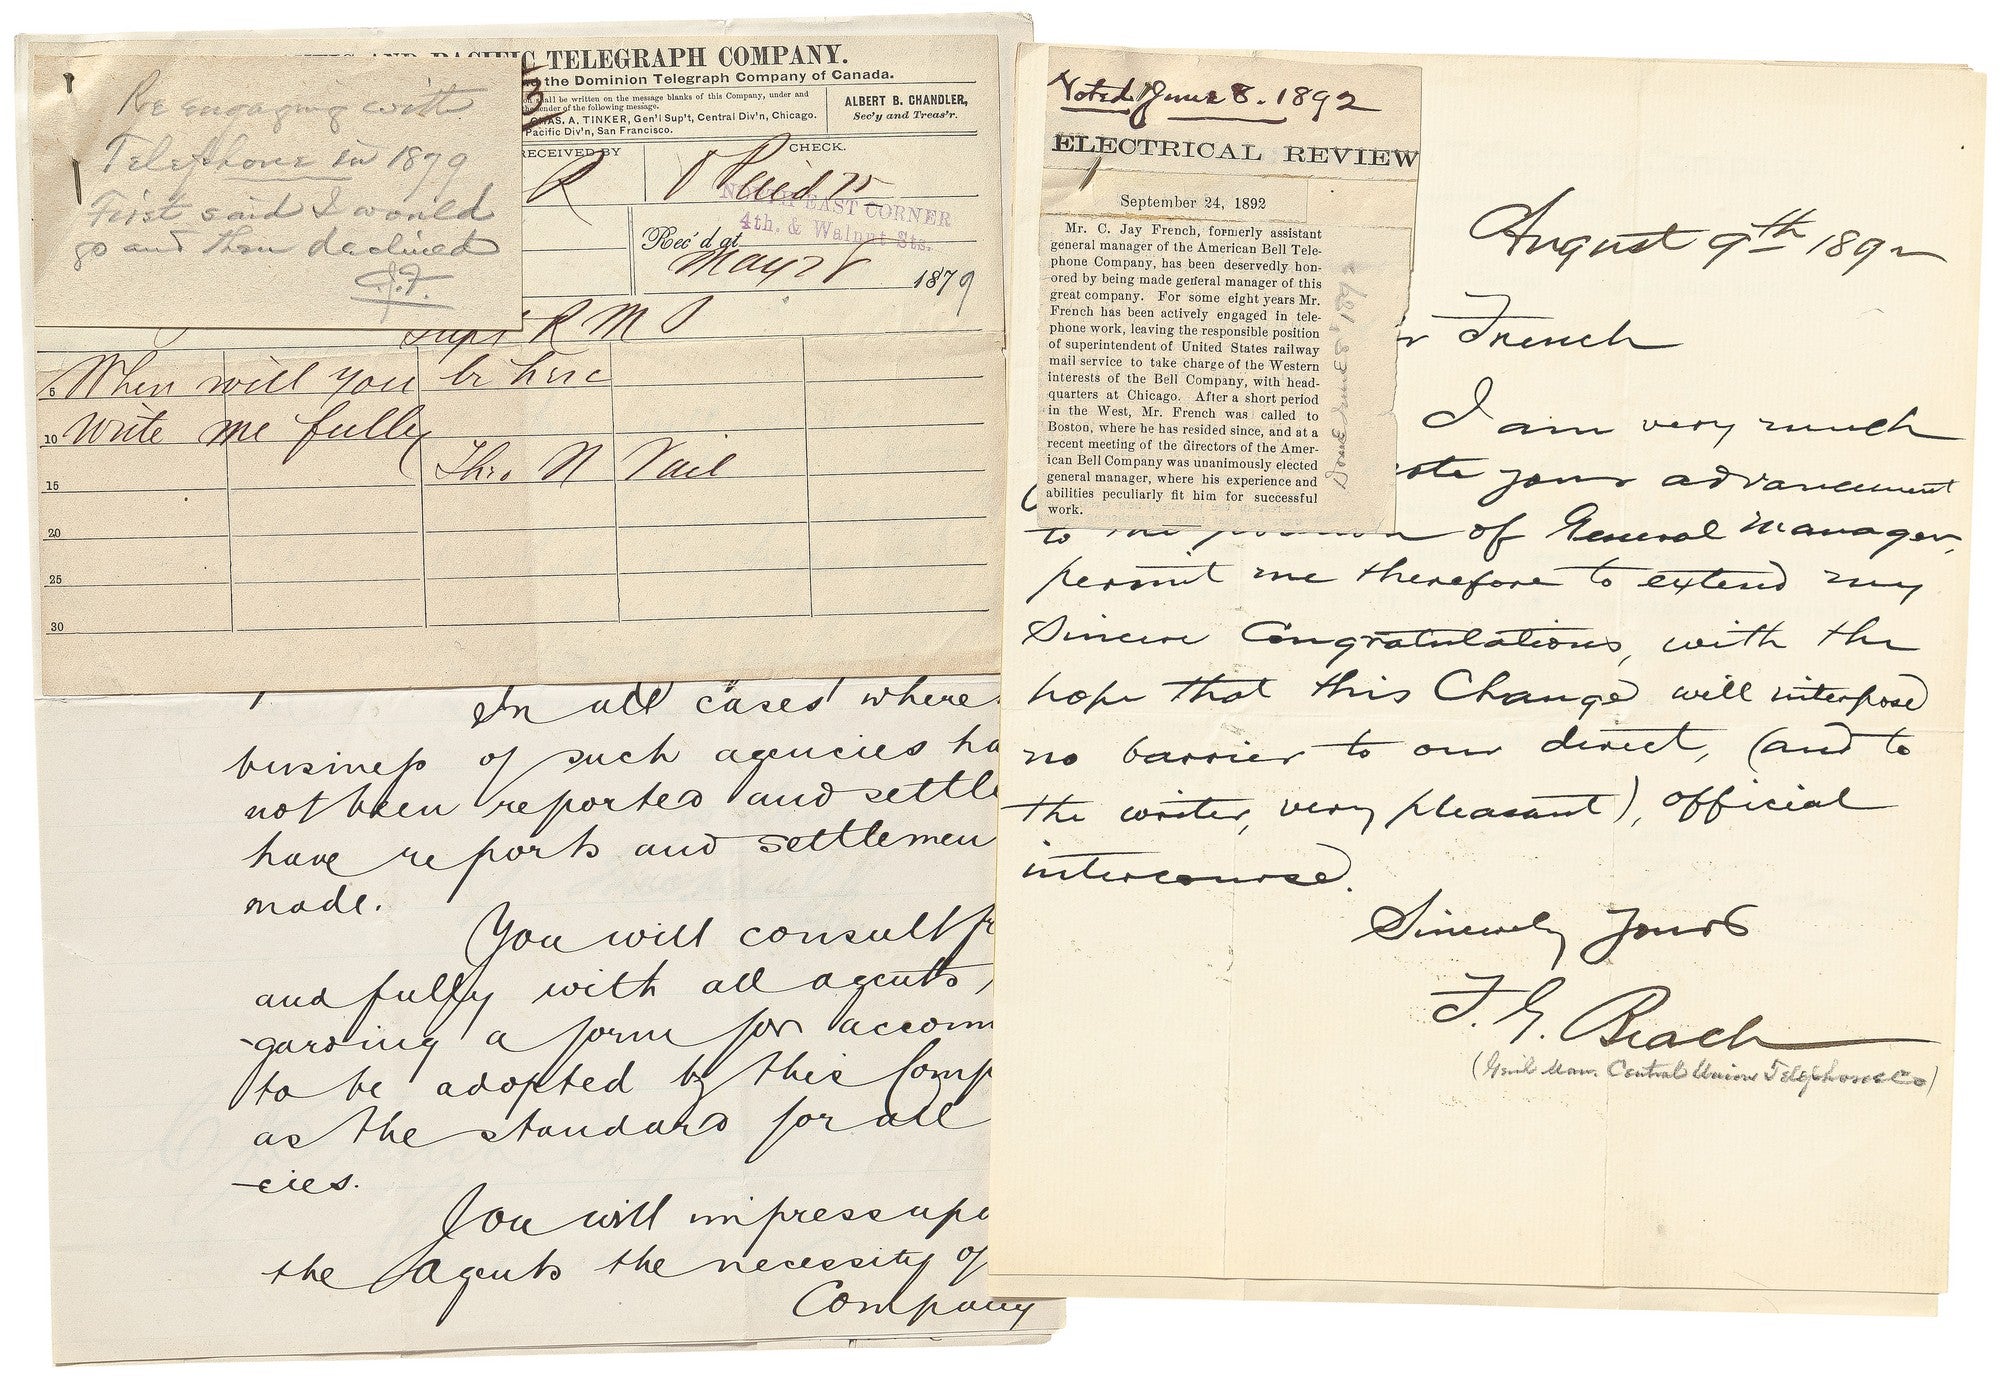 Re engaging with
Telephone in 1879
First said I would
go and then declined
C.J.F.
AND PACIFIC TELEGRAPH COMPANY.
the Dominion Telegraph Company of Canada.
shall be written on the message blanks of this Company, under and
sender of the following message.
CHAS. A. TINKER, Gen'l Sup't, Central Div'n, Chicago.
Pacific Div'n, San Francisco.
ALBERT B. CHANDLER,
Sec'y and Treas'r.
3
RECEIVED BY
CHECK.
R
Paid 75
NORTH EAST CORNER
4th. & Walnut Sts.
Rec'd at
May 28 1879
Supt R M S
5 When will you be here
10 Write me fully
Theo N Vail
15
20
25
30
In all cases where
business of such agencies ha
not been reported and settle
have reports and settlemen
made.
You will consult fr
and fully with all agents,
-garding a form for accoun
to be adopted by this Comp
as the standard for all
-cies.
You will impress upo
the Agents the necessity of
Company
Noted June 8. 1892
ELECTRICAL REVIEW
September 24, 1892
Mr. C. Jay French, formerly assistant
general manager of the American Bell Tele-
phone Company, has been deservedly hon-
ored by being made general manager of this
great company. For some eight years Mr.
French has been actively engaged in tele-
phone work, leaving the responsible position
of superintendent of United States railway
mail service to take charge of the Western
interests of the Bell Company, with head-
quarters at Chicago. After a short period
in the West, Mr. French was called to
Boston, where he has resided since, and at a
recent meeting of the directors of the Amer-
ican Bell Company was unanimously elected
general manager, where his experience and
abilities peculiarly fit him for successful
work.
June 8' 1892
August 9th 1892
r French
I am very much
ote your advancement
to the position of General Manager,
permit me therefore to extend my
Sincere Congratulations, with the
hope that this Change will interpose
no barrier to our direct, (and to
the writer, very pleasant), official
intercourse.
Sincerely Yours
F. G. Beach
(Gen'l Man. Central Union Telephone Co)